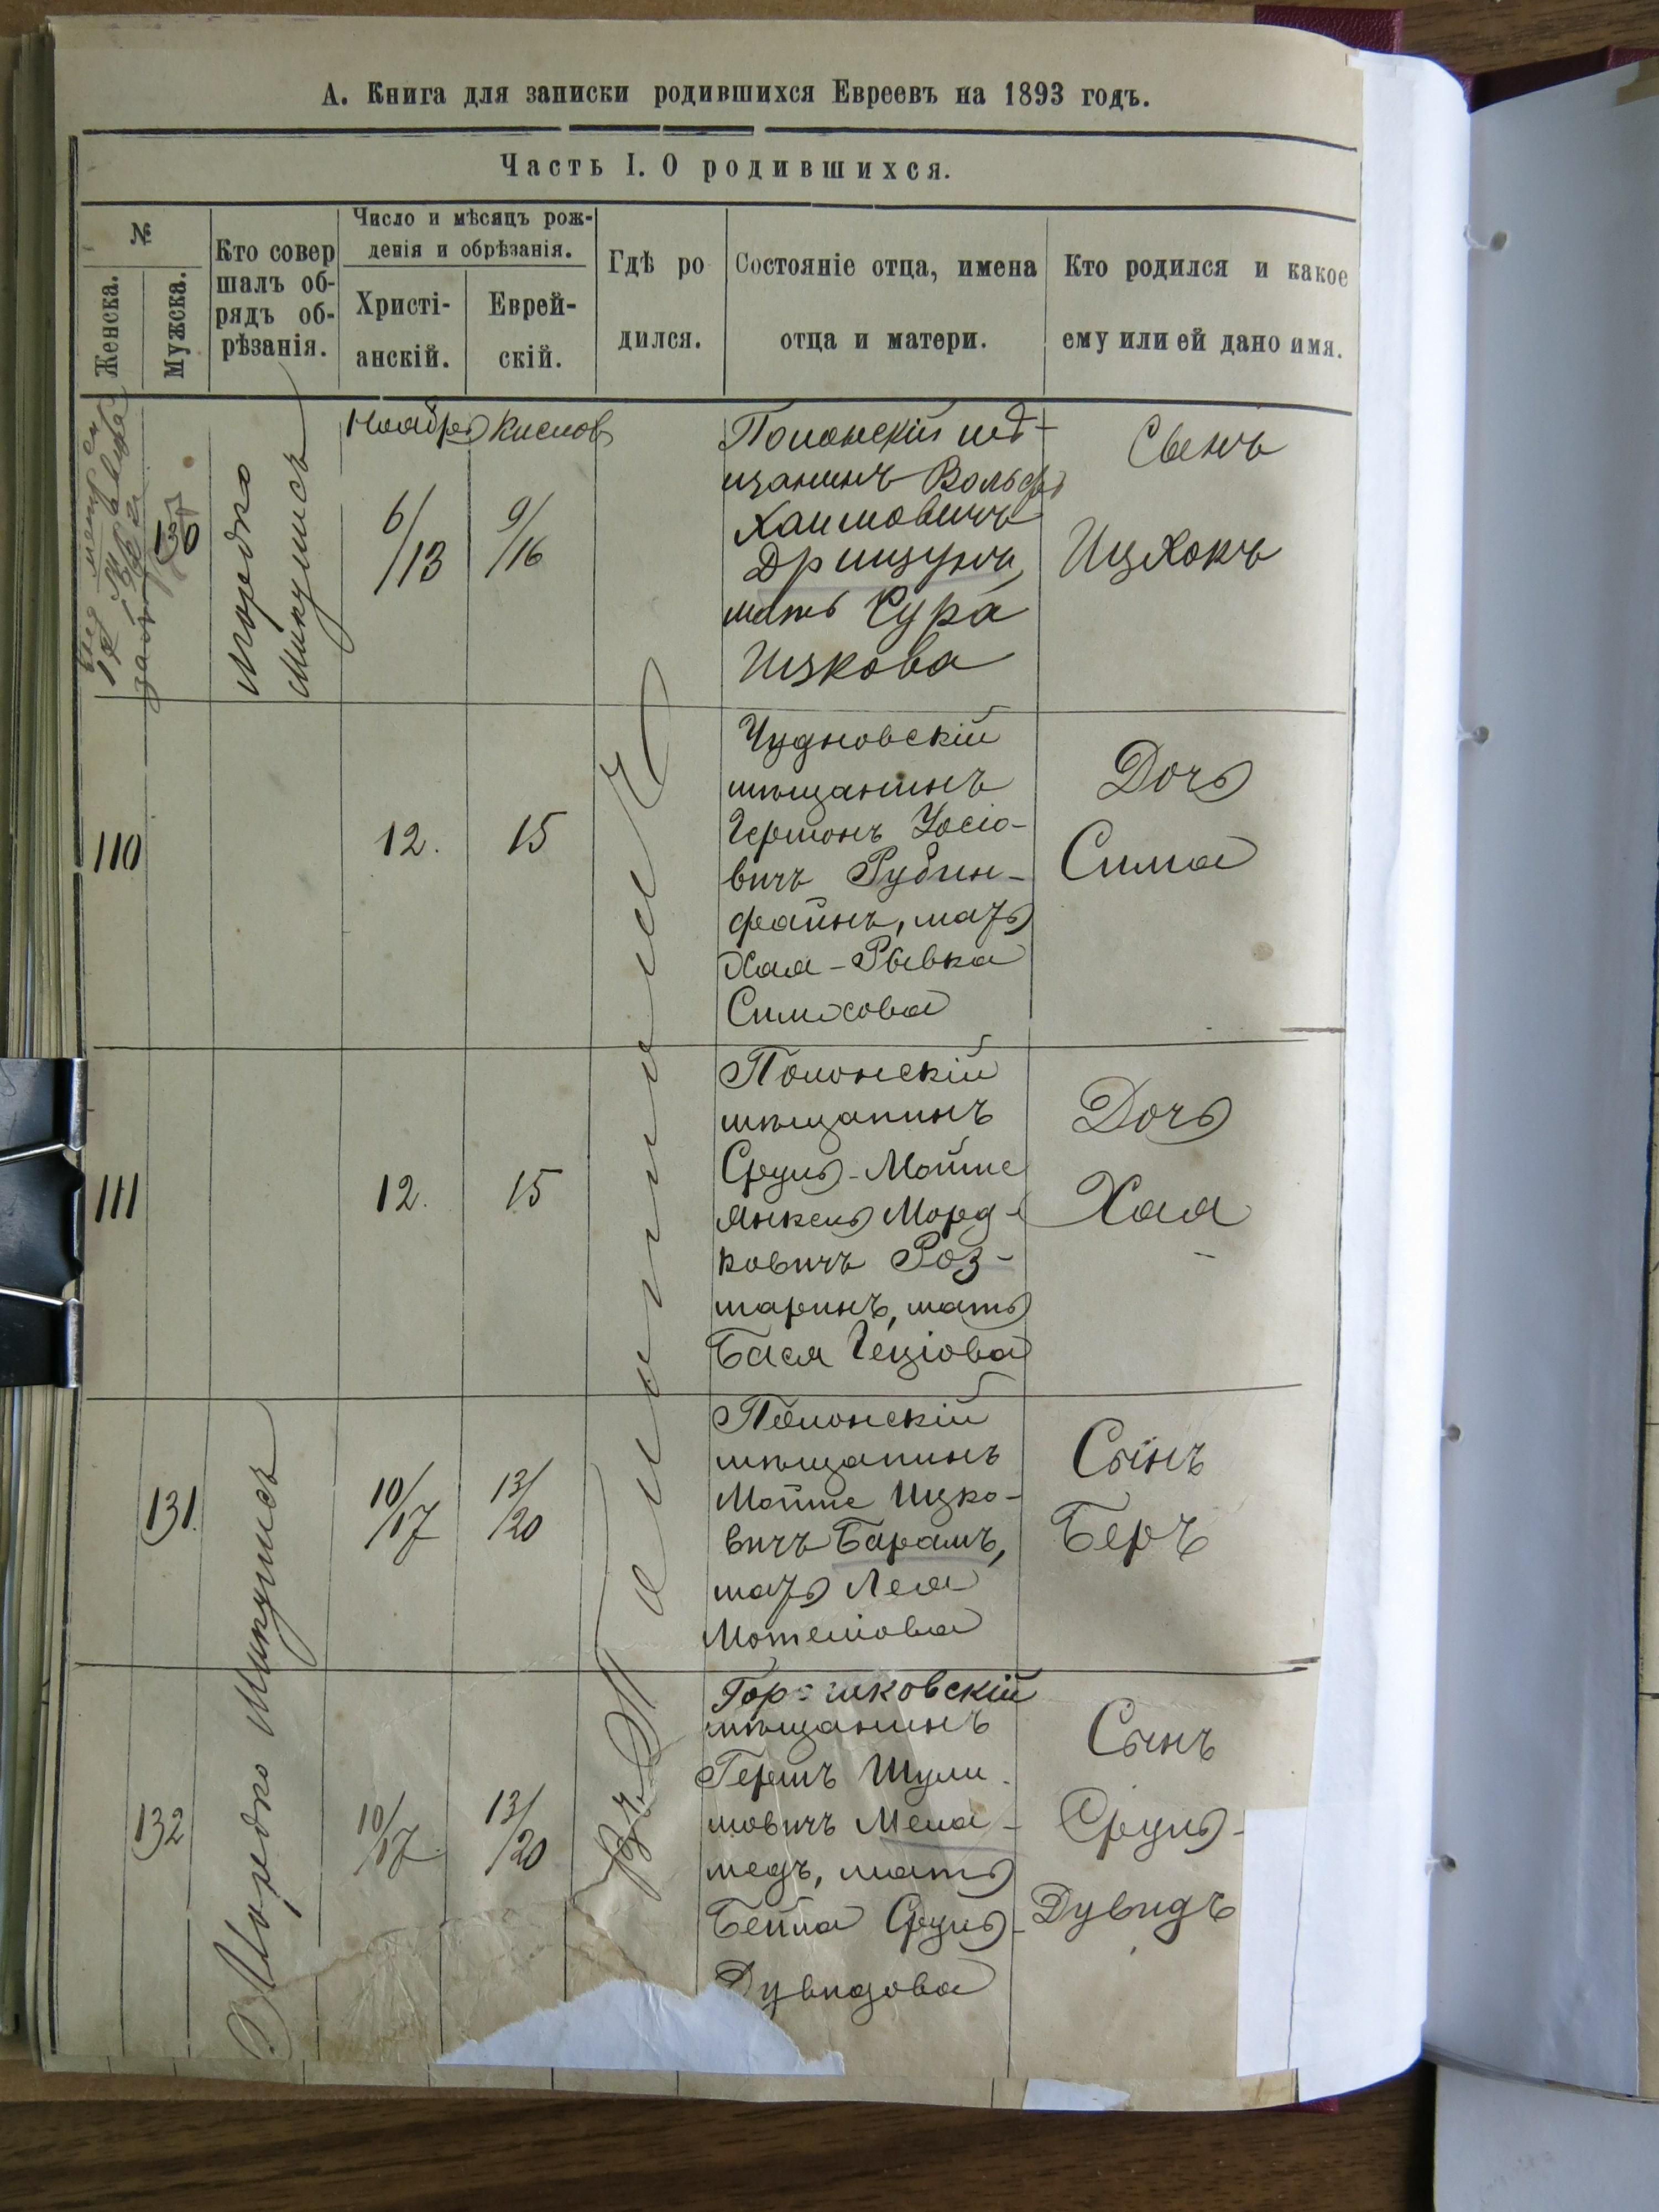 А. Книга для записки родившихся Евреевъ на 1893 годъ.
Часть I. О родившихся.
№
Женска.
Мужска.
Кто совер
шалъ об-
рядъ об-
рѣзанія.
Число и мѣсяцъ рож-
денія и обрѣзанія.
Христі-
анскій.
Еврей-
скій.
Гдѣ ро
дился.
Состояніе отца, имена
отца и матери.
Кто родился и какое
ему или ей дано имя.
130
Мордко
Микулисъ
Ноября
6/13
Кислов
9/16
Въ Полонномъ
Полонскій мѣ-
щанинъ Вольфъ
Хаимовичъ
Дрицунъ,
мать Сура
Ицкова
Сынъ
Ицхокъ
110
12.
15
Чудновскій
мѣщанинъ
Гершонъ Іосіо-
вичъ Рубин-
файнъ, мать
Хая-Рывка
Симхова
Дочь
Сима
111
12.
15
Полонскій
мѣщанинъ
Сруль-Мойше
Янкель Морд-
ковичъ Роз-
маринъ, мать
Бася Геціова
Дочь
Хая
131.
Мордко Микулисъ
10/17
13/20
Полонскій
мѣщанинъ
Мойше Ицко-
вичъ Барамъ,
мать Лея
Мотеліова
Сынъ
Беръ
132
10/17
13/20
мѣщанинъ
Гершъ Шули-
мовичъ Мела-
медъ, мать
Бейла Сруль-
Дувидова
Сынъ
Сруль-
Дувидъ